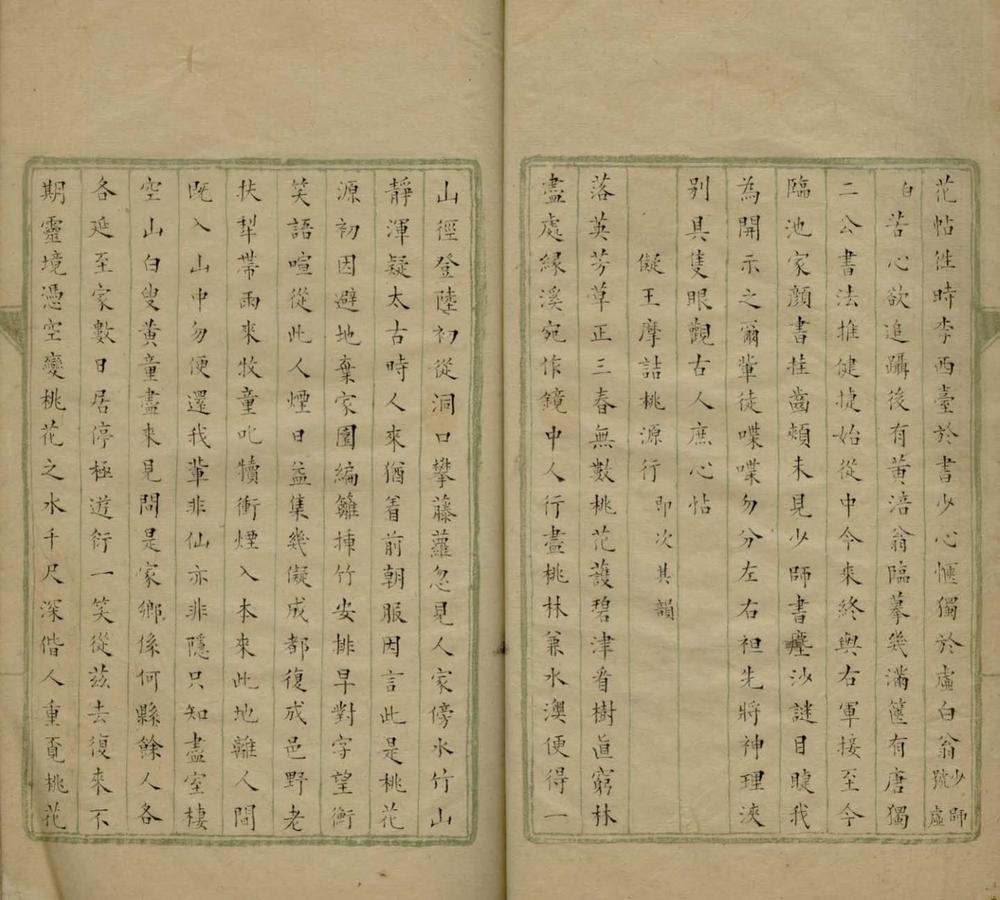 花帖徃時李西臺於書少心愜獨於虛白翁少師號虛
白苦心欲追躡後有黄涪翁臨摹幾滿篋有唐獨
二公書法推健捷始從中令來終與右軍接至今
臨池家顔書挂齒頰未見少師書塵沙謎目睫我
為開示之爾軰徒喋喋勿分左右袒先將神理浹
别具隻眼觀古人庶心帖
儗王摩詰桃源行即次其韻
落英芳草正三春無數桃花護碧津看樹直窮林
盡處緣溪宛作鏡中人行盡桃林兼水澳便得一
山徑登陸初從洞口攀藤蘿忽見人家傍水竹山
靜渾疑太古時人來猶着前朝服因言此是桃花
源初因避地棄家園編籬揷竹安排早對宇望衡
笑語喧從此人煙日益集幾儗成都復成邑野老
扶犁帶雨來牧童叱犢衝煙入本來此地離人間
旣入山中勿便還我軰非仙亦非隱只知盡室棲
空山白叟黄童盡來見問是家鄉係何縣餘人各
各延至家數日居停極遊衍一笑從茲去復來不
期靈境憑空變桃花之水千尺深偕人重覔桃花